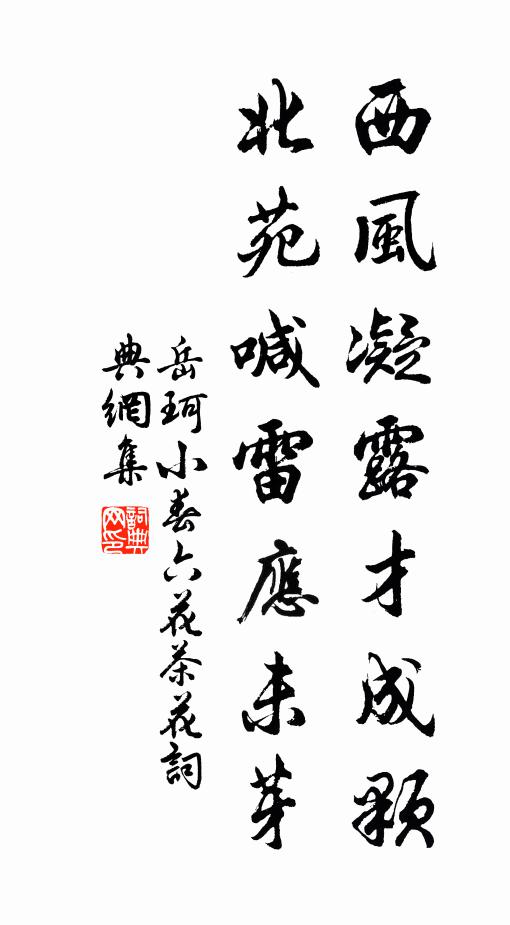 西風凝露才成顆
北苑喊雷應未芽
岳珂小春六花茶花詞
典網集
詞典網印